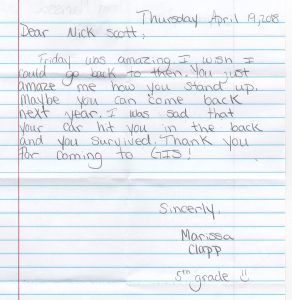 Thursday April 19, 2018
Dear Nick Scott,
Friday was amazing. I wish I
could go back to then. You just
amaze me how you stand up.
Maybe you can come back
next year. I was sad that
your car hit you in the back
and you survived. Thank you
for coming to GIS!
Sincerly,
Marissa
Clapp
5th grade